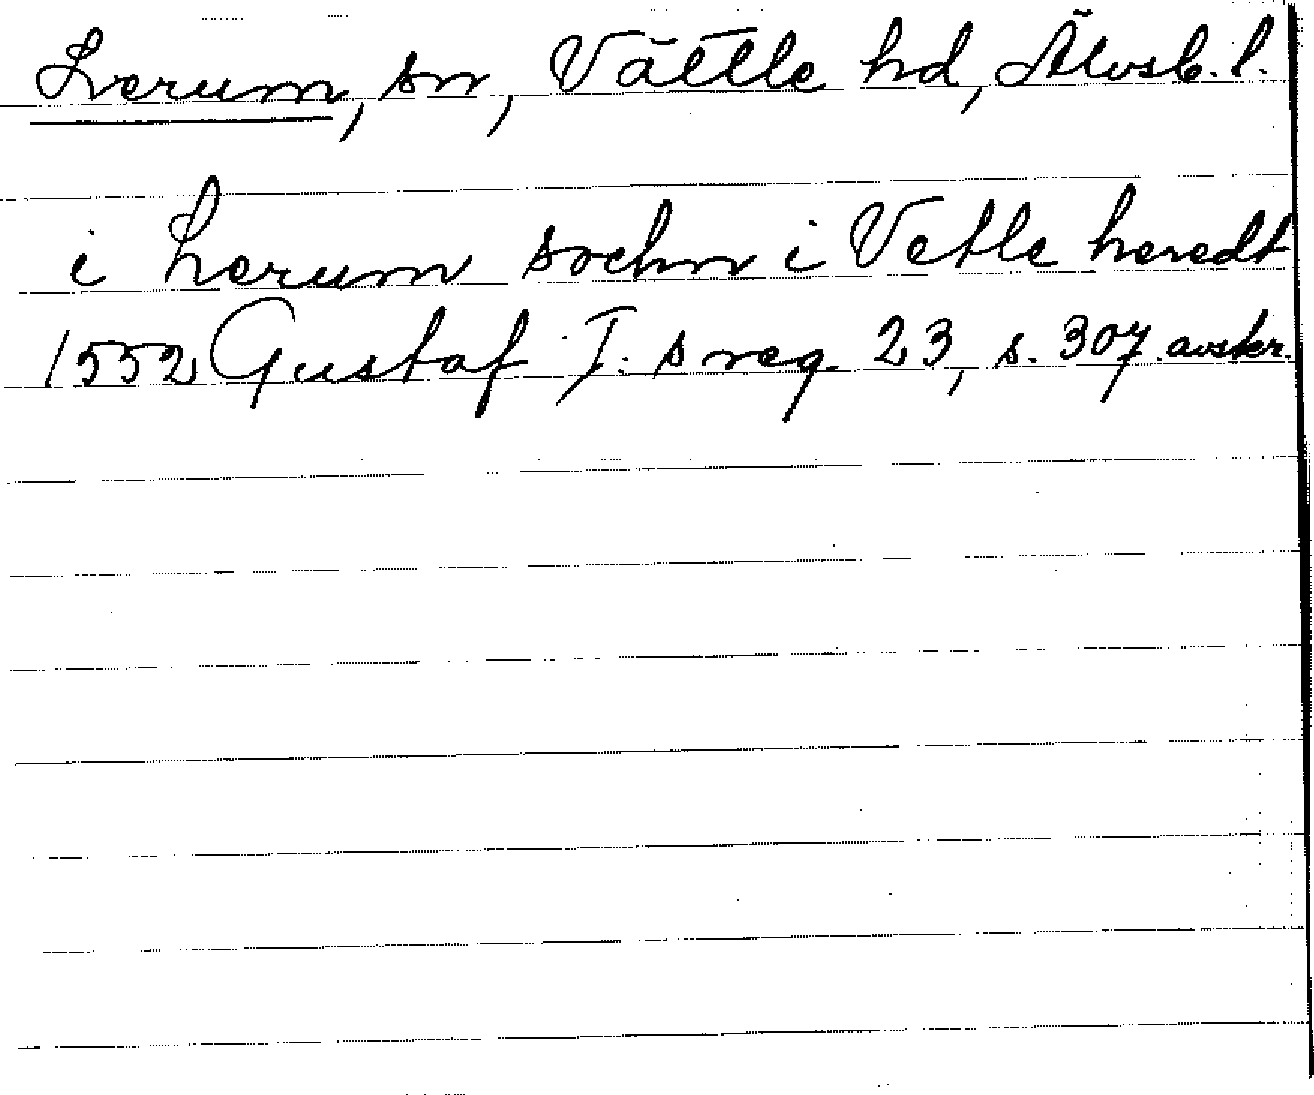 Lerum, sn, Vättle hd, Älvsb. l.
i Lerum sochn i Vetle heredt
1552 Gustaf I: s reg. 23, s. 307. avskr.